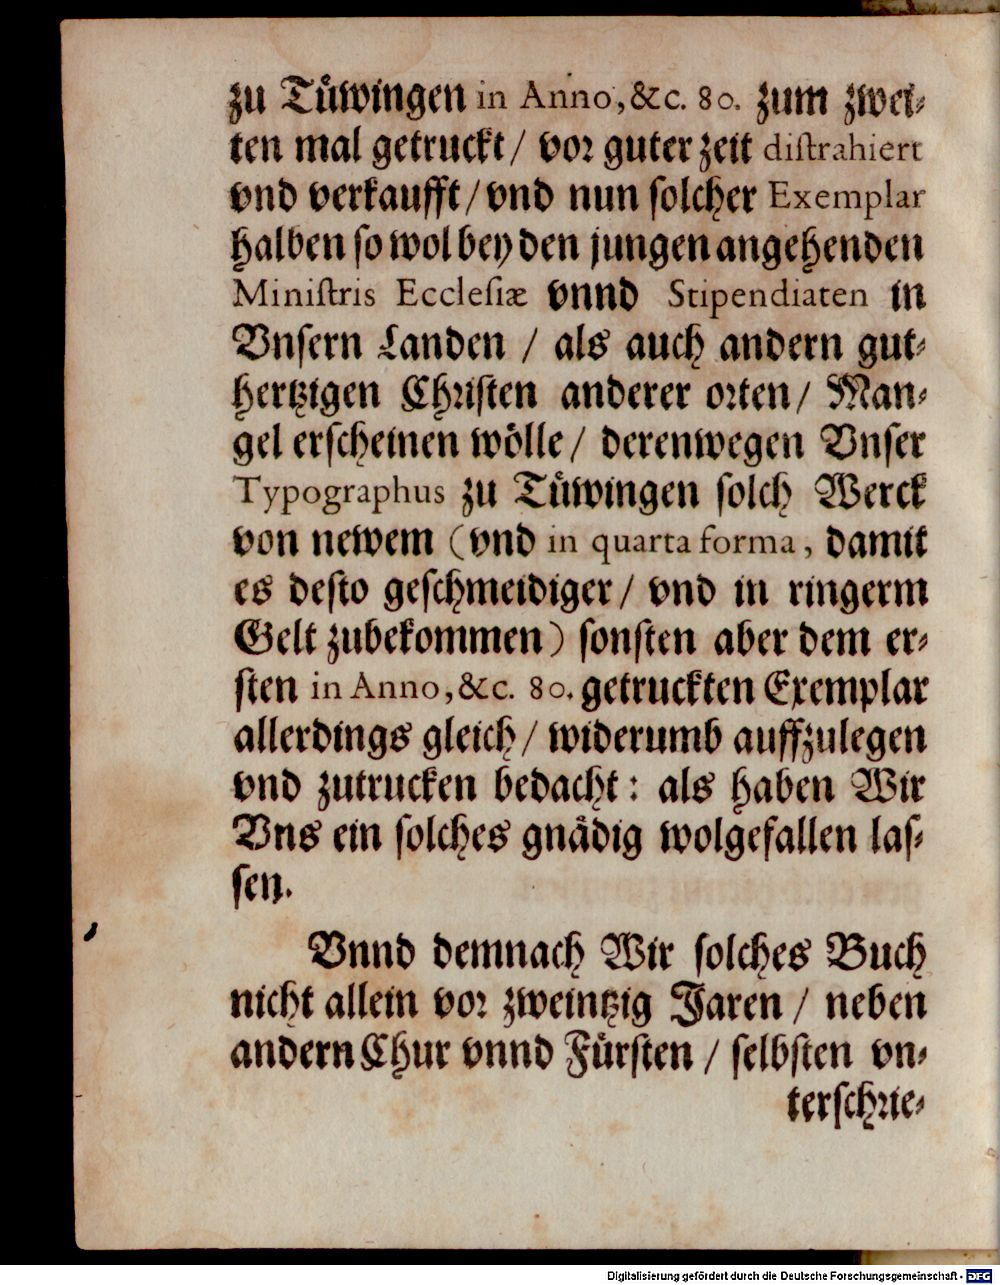 zu Tuͤwingen in Anno, &c. 80. zum zwei⸗
ten mal getruckt/ vor guter zeit diſtrahiert
vnd verkaufft/ vnd nun ſolcher Exemplar
halben ſo wol bey den jungen angehenden
Miniſtris Eccleſiæ vnnd Stipendiaten in
Vnſern Landen / als auch andern gut⸗
hertzigen Chꝛiſten anderer oꝛten/ Man⸗
gel erſcheinen woͤlle/ derenwegen Vnſer
Typographus zu Tuͤwingen ſolch Werck
von newem (vnd in quarta forma, damit
es deſto geſchmeidiger/ vnd in ringerm
Gelt zubekommen) ſonſten aber dem er⸗
ſten in Anno, &c. 80. getruckten Exemplar
allerdings gleich/ widerumb auffzulegen
vnd zutrucken bedacht: als haben Wir
Vns ein ſolches gnaͤdig wolgefallen laſ⸗
ſen.
Vnnd demnach Wir ſolches Buch
nicht allein voꝛ zweintzig Jaren / neben
andern Chur vnnd Fuͤrſten / ſelbſten vn⸗
terſchꝛie⸗
Digitalisierung gefördert durch die Deutsche Forschungsgemeinschaft - DFG